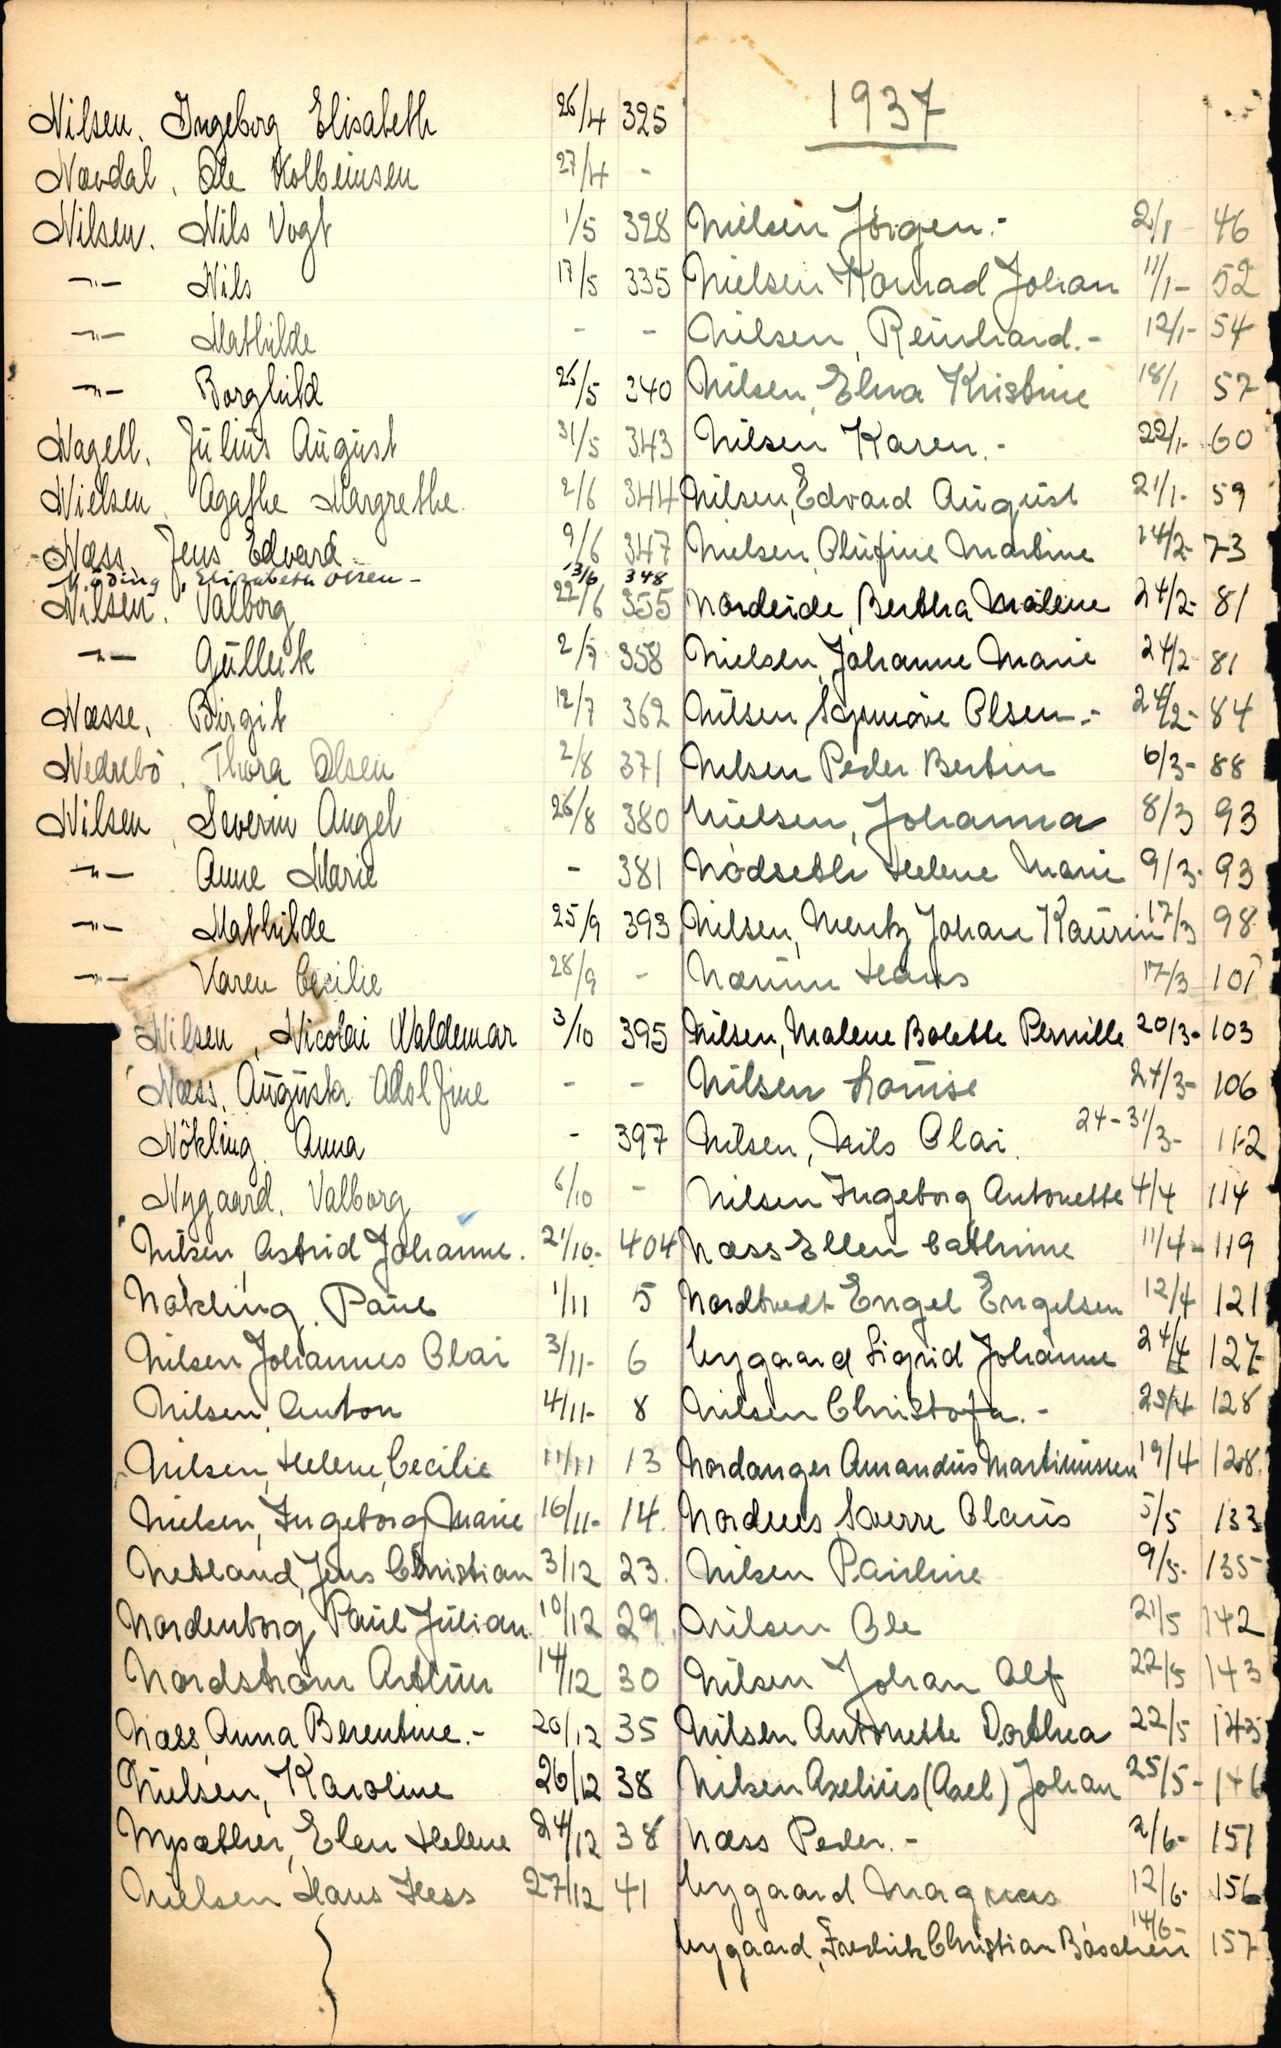 Nilsen. Ingeborg Elisabeth 26/4 325
Nævdal, Ole Kolbeinsen 27/4 -
Nilsen. Nils Vogt 1/5 328
-"- Nils 17/5 335
-"- Mathilde - -
-"- Borghild 26/5 340
Nagell. Julius August 31/5 343
Nielsen. Agathe Margrethe 2/6 344
Næss Jens Edvard 9/6 347
Elizabeth Olsen - 13/6 348
Nilsen. Valborg 22/6 355
-"- Gullek 2/7 358
Næsse, Birgit 12/7 362
Nedrebö, Thora Olsen 2/8 371
Nilsen, Severin Angel 26/8 380
-"- Anne Marie - 381
-"- Mathilde 25/9 393
-"- Karen Cecilie 28/9 -
Nilsen, Nicolai Waldemar 3/10 395
Næss, Augusta Adolfine - -
Nökling, Anna - 397
Nygaard, Valborg 6/10 -
Nilsen, Astrid Johanne. 21/10- 404
Nökling, Paul 1/11 5
Nilsen, Johannes Olai 3/11- 6
Nilsen, Anton 4/11- 8
Nilsen, Helene, Cecilie 11/11 13
Nielsen, Ingeborg Marie 16/11- 14.
Netland, Jens Christian 3/12 23.
Nordenborg Paul Julian 10/12 29
Nordstrøm Arthur 14/12 30
Næss, Anna Berentine.- 20/12 35
Nielsen, Karoline 26/12 38
Nysæther, Elen Helene 24/12 38
Nielsen Hans Hess 27/12 41
1937
Nielsen Jörgen.- 2/1 46
Nielsen Konrad Johan 11/1- 52
Nilsen, Reinhard.- 12/1- 54
Nilsen, Elna Kristine 18/1 57
Nilsen Karen.- 22/1- 60
Nilsen, Edvard August 21/1- 59
Nielsen, Olufine Martine 14/2- 73
Nordeide, Bertha Malene 24/2- 81
Nielsen, Johanne Marie 24/2 81
Nilsen, Synnöve Olsen.- 24/2- 84
Nilsen Peder Bertin 6/3- 88
Nielsen, Johanna 8/3 93
Nödseth Helene Marie 9/3- 93
Nilsen, Mentz Johan Kaurin 17/3 98
Hans 17/3 101
Nilsen, Malene Bolette Pernille 20/3- 103
Nilsen Louise 24/3- 106
Nilsen, Nils Olai 24-31/3- 112
Nilsen Ingeborg Antonette 4/4 114
Næss Ellen Cathrine 11/4- 119
Nordtvedt Engel Engelsen 12/4 121
Nygaard Sigrid Johanne 24/4 127
Nilsen Christofa.- 25/4 128
Nordanger Amandus Martinussen 19/4 128.
Nordnes, Sverre Claus 5/5 133
Nilsen Pauline 9/5- 135
Nilsen Ole 21/5 142
Nilsen Johan Alf 22/5 143
Nilsen Antonette Dorthea 22/5 143
Nilsen Axelius (Axel) Johan 25/5- 146
Næss Peder.- 2/6- 151
Nygaard Magnus 12/6- 156
Nygaard, Fredrik Christian Böschen 14/6- 157